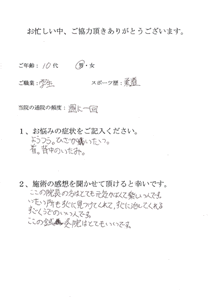 お忙しい中、ご協力頂きありがとうございます。
ご年齢：10代 男・女
ご職業：学生 スポーツ歴：柔道
当院の通院の頻度：週に一回
1、お悩みの症状をご記入ください。
ようつう。ひざが痛いたい。
首。背中のいたみ。
2、施術の感想を聞かせて頂けると幸いです。
この院長の方はとても元気がよくて楽しい人です。
いたい所もすぐに見つけてくれて、すぐに治してくれる
すごくうでのいい人です。
この 院はとてもいいです。